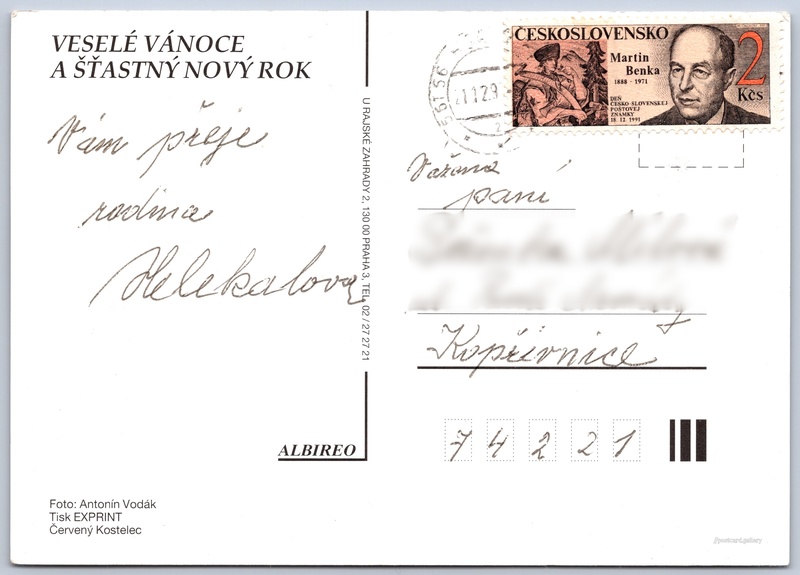 VESELÉ VÁNOCE
A ŠŤASTNÝ NOVÝ ROK
Vám přeje
rodina
Helekalova
U RAJSKÉ ZAHRADY 2, 130 00 PRAHA 3, TEL. 02 / 27 27 21
ALBIREO
Foto: Antonín Vodák
Tisk EXPRINT
Červený Kostelec
ČESKOSLOVENSKO
Martin
Benka
1888 - 1971
DEŇ
ČESKO-SLOVENSKEJ
POŠTOVEJ
ZNÁMKY
18. 12. 1991
2
Kčs
Vážená
paní
Kopřivnice
74221
postcard.gallery